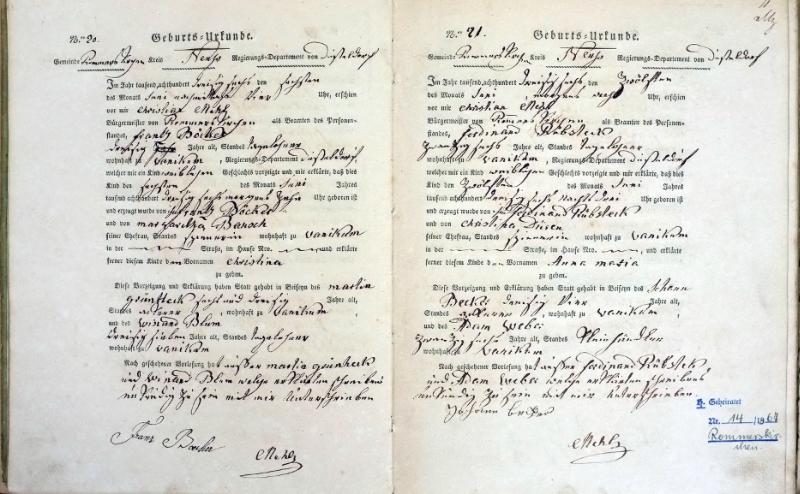 N.ro 20. Geburts-Urkunde.
Gemeinde Kreis Neuss Regierungs-Departement von Düsseldorf
Im Jahr tausend,achthundert dreisig sechs den sechsten
des Monats Juni nachmittags vier Uhr, erschien
vor mir christian Mehl
Bürgermeister von Rommerskirchen als Beamten des Personen-
standes, frantz Böcker
dreisig Jahre alt, Standes Tagelohner
wohnhaft zu vanikum, Regierungs-Departement Düsseldorf
welcher mir ein Kind weiblichen Geschlechts vorzeigte und mir erklärte, daß dies
Kind den sechsten des Monats Juni Jahres
tausend achthundert dreisig sechs morgens zehn Uhr geboren ist
und erzeugt wurde von frantz Böcker
und von margaretha Bausch
seiner Ehefrau, Standes wohnhaft zu vanikum
in der Straße, im Hause Nro. und erklärte
ferner diesem Kinde den Vornamen christina
zu geben.
Diese Vorzeigung und Erklärung haben Statt gehabt in Beiseyn des
Jahre alt,
Standes ackerer, wohnhaft zu vanikum
und des winand Blum
dreisig sieben Jahre alt, Standes Tagelohner
wohnhaft zu vanikum
Nach geschehener Vorlesung
und winand Blum welche erklärten schreibens
unkundig zu sein mit mir unterschrieben
Franz
Mehl
N.ro 21. Geburts-Urkunde.
Gemeinde Kreis Neuss Regierungs-Departement von Düsseldorf
Im Jahr tausend,achthundert dreisig sechs den zwölften
des Monats Juni morgens acht Uhr, erschien
vor mir christian Mehl
Bürgermeister von Rommerskirchen als Beamten des Personen-
standes, ferdinand Rübsteck
zwanzig sechs Jahre alt, Standes Tagelohner
wohnhaft zu vanikum, Regierungs-Departement Düsseldorf
welcher mir ein Kind weiblichen Geschlechts vorzeigte und mir erklärte, daß dies
Kind den zwölften des Monats Juni Jahres
tausend achthundert dreisig sechs nachts drei Uhr geboren ist
und erzeugt wurde von ferdinand Rübsteck
und von christina
seiner Ehefrau, Standes wohnhaft zu vanikum
in der Straße, im Hause Nro. und erklärte
ferner diesem Kinde den Vornamen Anna maria
zu geben.
Diese Vorzeigung und Erklärung haben Statt gehabt in Beiseyn des Johann
Becker dreisig vier Jahre alt,
Standes ackerer, wohnhaft zu vanikum,
und des Adam weber
zwanzig sechs Jahre alt, Standes Kleinhändler
wohnhaft vanikum
Nach geschehener Vorlesung ferdinand Rübsteck
und Adam weber welche erklärten schreibens
unkundig zu sein mit mir unterschrieben.
Johann Becker
Mehl
h. Geheiratet
Nr. 14 /1864
Rommerskir
chen.